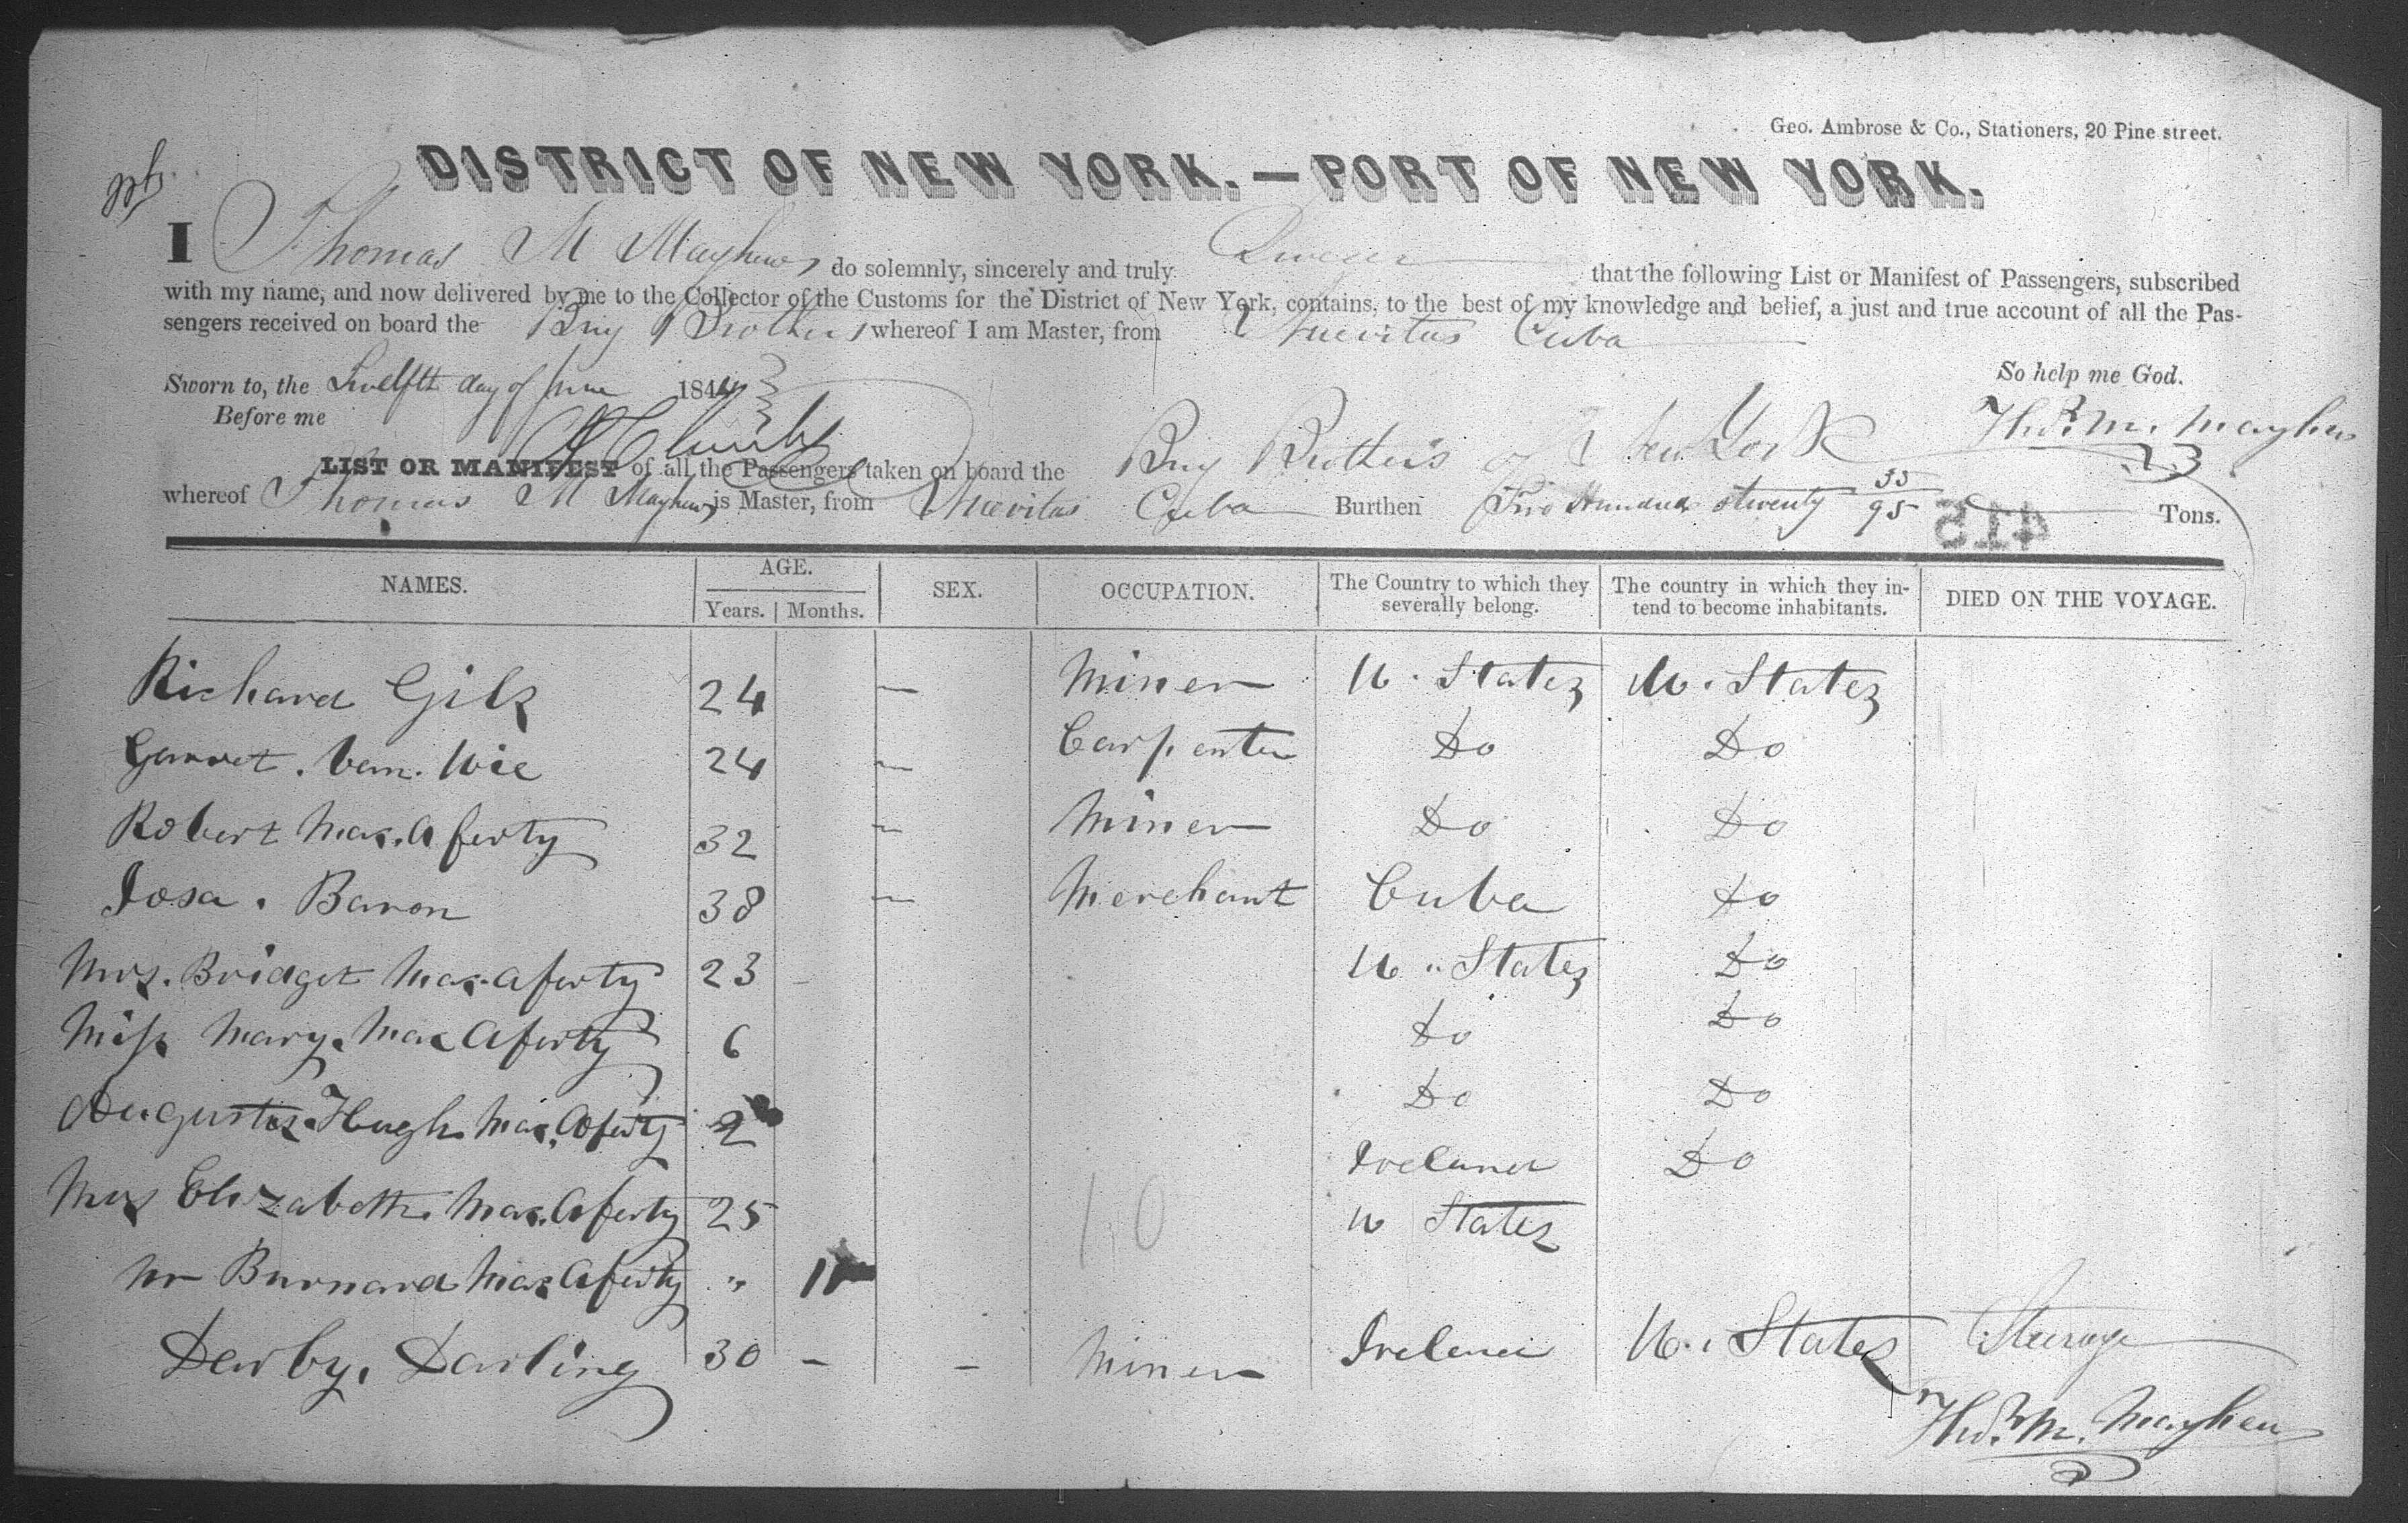 Geo. Ambrose & Co., Stationers, 20 Pine street.
DISTRICT OF NEW YORK.—PORT OF NEW YORK.
I Thomas M Mayhew do solemnly, sincerely and truly Swear that the following List or Manifest of Passengers, subscribed
with my name, and now delivered by me to the Collector of the Customs for the District of New York, contains, to the best of my knowledge and belief, a just and true account of all the Pas-
sengers received on board the Brig Brothers whereof I am Master, from Nuevitas Cuba
So help me God.
Sworn to, the Twelfth day of June 1844
Before me
Thos. M. Mayhew
LIST OR MANIFEST of all the Passengers taken on board the Brig Brothers of New York
whereof Thomas M Mayhew is Master, from Nuevitas Cuba Burthen Two Hundred & twenty 35/95 Tons.
415
NAMES. AGE. SEX. OCCUPATION. The Country to which they severally belong. The country in which they in-tend to become inhabitants. DIED ON THE VOYAGE.
Years. Months.
Richard Gilk 24 — Miner U. States U. States
Garret. Van. Wie 24 — Carpenter Do Do
Robert Mac.Aferty 32 — Miner Do Do
Josa. Baron 38 — Merchant Cuba Do
Mrs. Bridget Mac.Aferty 23 - U. States Do
Miss Mary. Mac Aferty 6 Do Do
Augustus. Hugh. Mac. Aferty 2 Do Do
Mrs Elizabeth. Mac.Aferty 25 Ireland Do
Mr Burnard Mac Aferty " 11 U States
10
Darby. Darling 30 — — Miner Ireland U. States Steerage
Thos. M. Mayhew